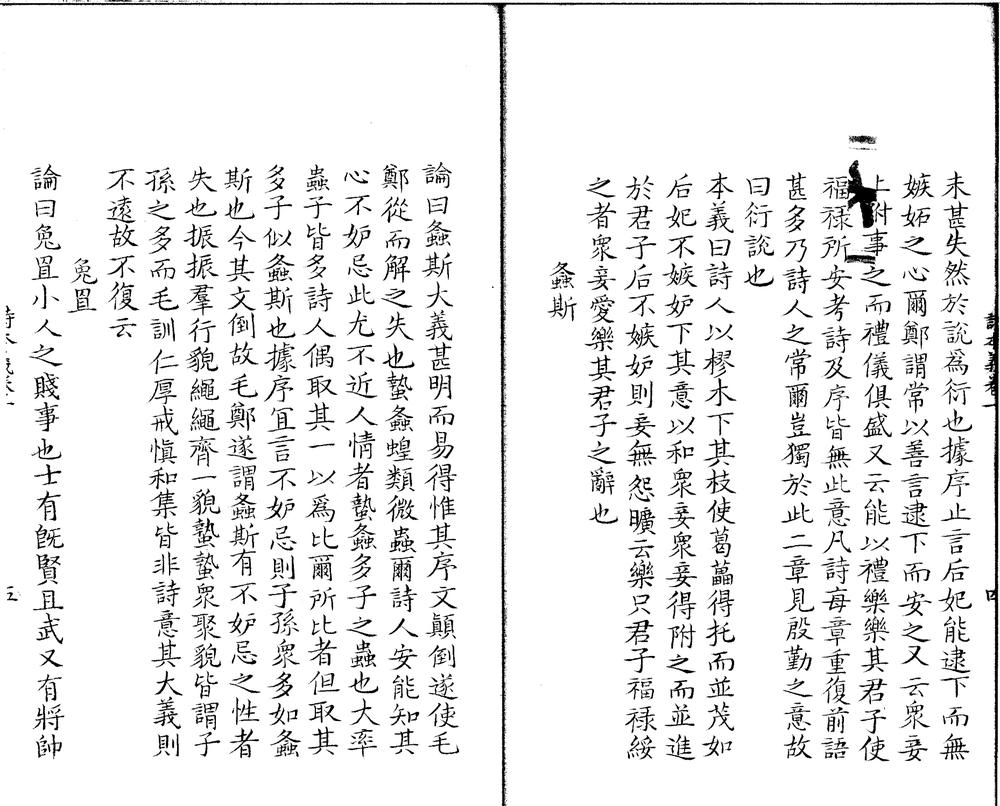 未甚失然於說爲衍也據序止言后妃能逮下而無
嫉妬之心爾鄭謂常以善言逮下而安之又云衆妾
上附事之而禮儀俱盛又云能以禮樂樂其君子使
福祿所安考詩及序皆無此意凡詩每章重復前語
甚多乃詩人之常爾豈獨於此二章見殷勤之意故
曰衍說也
本義曰詩人以樛木下其枝使葛藟得托而並茂如
后妃不嫉妒下其意以和衆妾衆妾得附之而並進
於君子后不嫉妒則妾無怨曠云樂只君子福祿綏
之者衆妾愛樂其君子之辭也
螽斯
論曰螽斯大義甚明而易得惟其序文顛倒遂使毛
鄭從而解之失也蟄螽蝗類微蟲爾詩人安能知其
心不妒忌此尤不近人情者蟄螽多子之蟲也大率
蟲子皆多詩人偶取其一以爲比爾所比者但取其
多子似螽斯也據序宜言不妒忌則子孫衆多如螽
斯也今其文倒故毛鄭遂謂螽斯有不妒忌之性者
失也振振羣行貌繩繩齊一貌蟄蟄衆聚貌皆謂子
孫之多而毛訓仁厚戒慎和集皆非詩意其大義則
不遠故不復云
兔罝
論曰兔罝小人之賤事也士有旣賢且武又有將帥